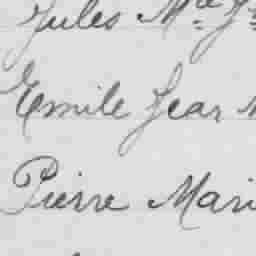 Jules Mie J
Emile Jean M
Pierre Mari